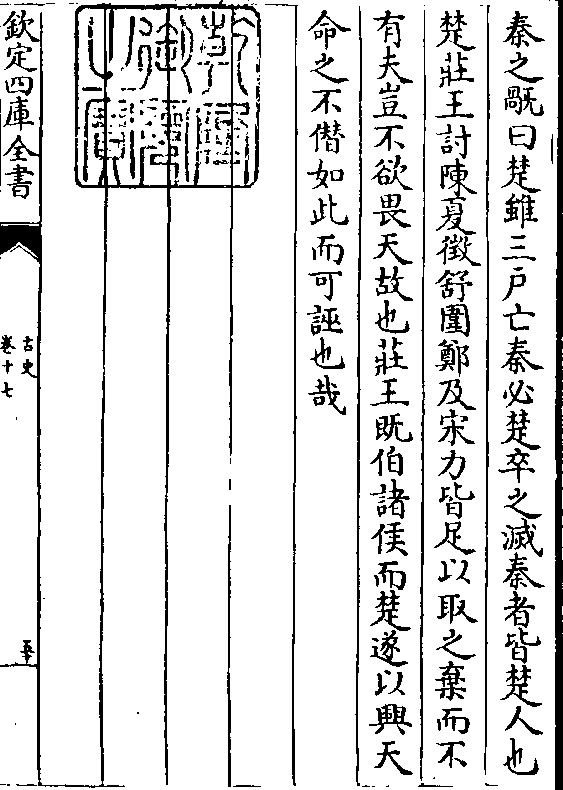 秦之覹曰楚雖三戸亡秦必楚卒之滅秦者皆楚人也
楚莊王討陳夏徵舒圍鄭及宋力皆足以取之棄而不
有夫豈不欲畏天故也莊王既伯諸侯而楚遂以興天
命之不僭如此而可誣也哉
乾隆御覽之寶
欽定四庫全書
古史
卷十七